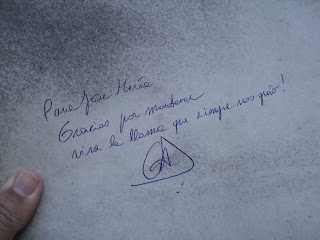 Para Jose María
Gracias por mantener
viva la llama que siempre nos guió!